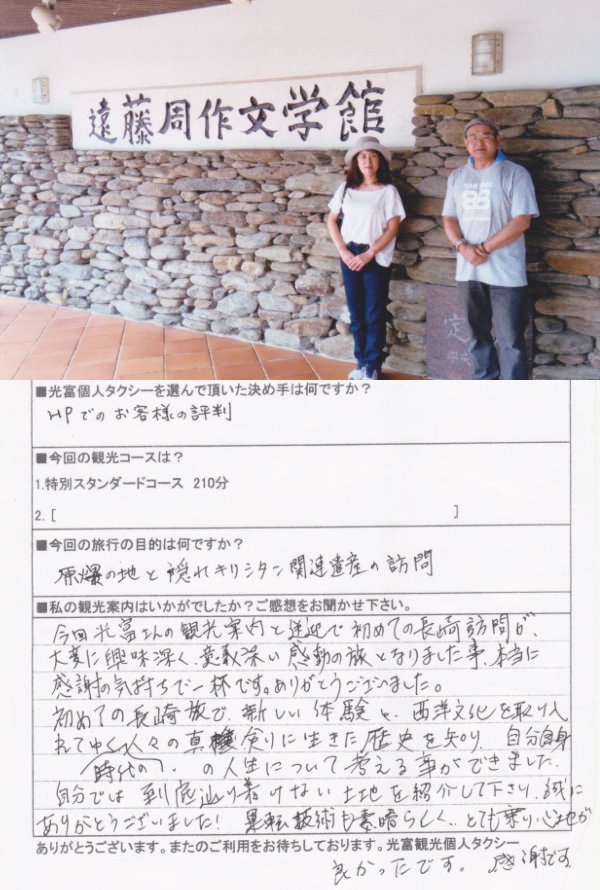 遠藤周作文学館
95
定
■光富個人タクシーを選んで頂いた決め手は何ですか？
HPでのお客様の評判
■今回の観光コースは？
1.特別スタンダードコース 210分
2. [ ]
■今回の旅行の目的は何ですか？
原爆の地と隠れキリシタン関連遺産の訪問
■私の観光案内はいかがでしたか？ご感想をお聞かせ下さい。
今回光富さんの観光案内と送迎で初めての長崎訪問が、
大変に興味深く、意義深い感動の旅となりました事、本当に
感謝の気持ちで一杯です。ありがとうございました。
初めての長崎旅で新しい体験と、西洋文化を取り入
れてゆく人々の真剣に生きた歴史を知り、自分自身
時代の の人生について考える事ができました。
自分では到底辿り着けない土地を紹介して下さり、誠に
ありがとうございました！ 運転技術も素晴らしく、とても乗り心地が
ありがとうございます。またのご利用をお待ちしております。光富観光個人タクシー
良かったです。感謝です